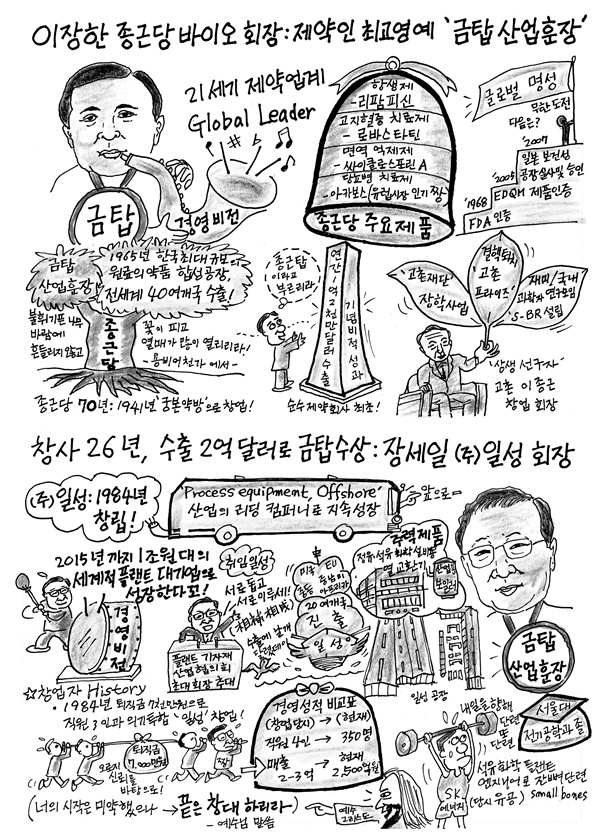 이장한 종근당 바이오 회장: 제약인 최고영예 '금탑 산업훈장'
21세기 제약업계
Global Leader
금탑
경영비전
항생제
- 리팜피신
고지혈증 치료제
- 로바스타틴
면역 억제제
- 싸이클로스포린 A
당뇨병 치료제
- 아카보스(유럽시장 인기 짱)
종근당 주요제품
글로벌 명성
무한도전
다음은?
'2007
일본 보건성
공장실사 및 승인
'2005
EDQM 제품인증
'1968
FDA 인증
금탑
산업훈장
1965년 한국최대 규모의
원료의약품 합성공장,
전세계 40여개국 수출!
불휘기픈 나무
바람에
흔들리지 않고
종근당
꽃이 피고
열매가 많이 열리리라!
- 용비어천가에서 -
종근당 70년: 1941년 '궁본약방'으로 창업!
종근탑
이라고
부르리라.
연간 1억 2천만 달러 수출
기념비적 성과
순수제약회사 최초!
'고촌재단'
장학사업
결핵퇴치
'고촌
프라이즈'
재미/국내
과학자 연수모임
'S-BR 설립
'상생 선구자'
고촌 이종근
창업 회장
창사 26년, 수출 2억 달러로 금탑수상: 장세일 (주)일성 회장
(주)일성: 1984년
창립!
Process equipment, Offshore'
산업의 리딩 컴퍼니로 지속성장
앞으로-
2015년까지 1조원대의
세계적 플랜트 대기업으로
성장한다꼬!
경영비전
취임일성
서로 돕고
서로 이루세!
相補相成
수출에 날개
플랜트 기자재
산업협의회
초대회장 추대
미국 EU
중동 중남미
아프리카
20여개국
진출
일성
주력제품
정유·석유화학 설비용
열교환기
산업용
보일러
일성 공장
금탑
산업훈장
☆창업자 History
• 1984년 퇴직금 7천만원으로
직원 3인과 의기투합 '일성' 창업!
퇴직금
7,000만원
장
오로지
신뢰를
바탕으로!
경영성적 비교표
(창업당시) → (현재)
직원 4인 → 350명
매출 → 현재
2-3억 2,500억원
내일을 향해
단련
또
단련
서울대
전기공학과 졸
SK
에너지
(당시 유공)
석유화학 플랜트
엔지니어로 잔뼈 단련
small bones
(너의 시작은 미약했으나 → 끝은 창대하리라
- 예수님 말씀
예수
그리스도